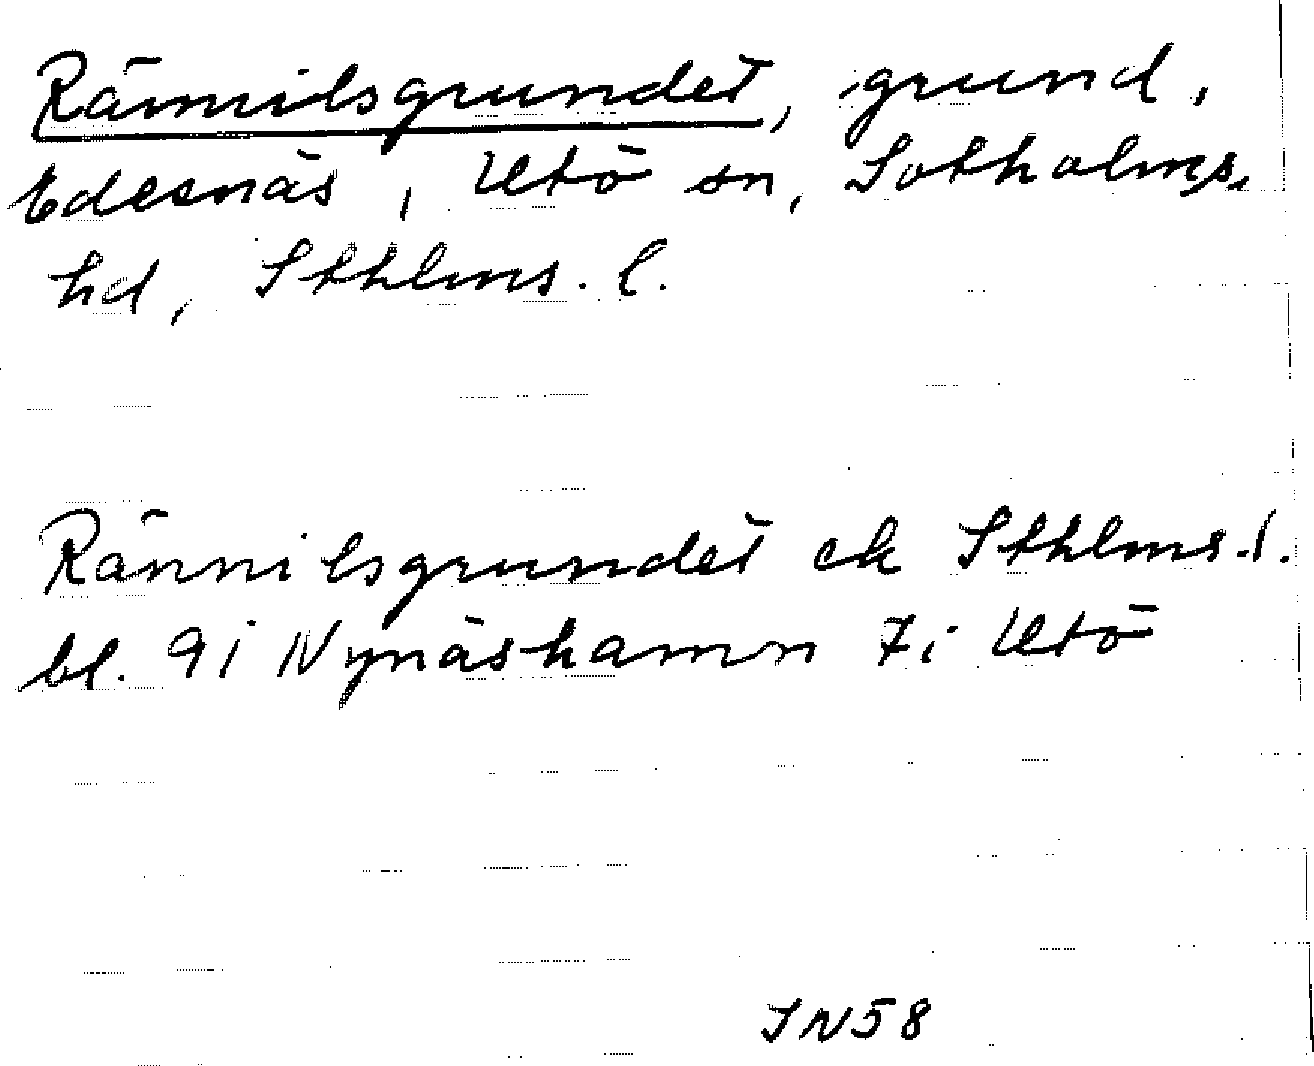 Rännilsgrundet, grund,
Edesnäs, Utö sn, Sotholms,
hd, Sthlms. l.
Rännilsgrundet ek Sthlms. l.
bl. 91 Nynäshamn 7i Utö
IN58